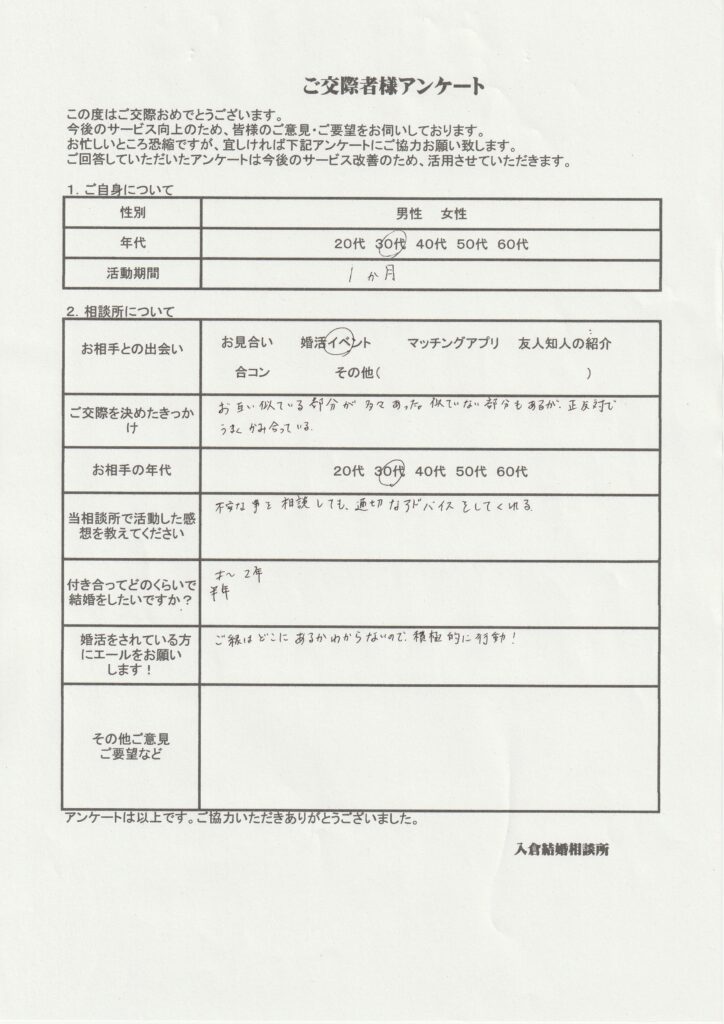 ご交際者様アンケート
この度はご交際おめでとうございます。
今後のサービス向上のため、皆様のご意見・ご要望をお伺いしております。
お忙しいところ恐縮ですが、宜しければ下記アンケートにご協力お願い致します。
ご回答していただいたアンケートは今後のサービス改善のため、活用させていただきます。
1. ご自身について
性別 男性 女性
年代 20代 30代 40代 50代 60代
活動期間 1か月
2. 相談所について
お相手との出会い お見合い 婚活イベント マッチングアプリ 友人知人の紹介
合コン その他( )
ご交際を決めたきっか
け
お互い似ている部分が多々あった。似ていない部分もあるが、正反対で
うまくかみ合っている。
お相手の年代 20代 30代 40代 50代 60代
当相談所で活動した感
想を教えてください
不安な事を相談しても、適切なアドバイスをしてくれる。
付き合ってどのくらいで
結婚をしたいですか？
〜2年
半年
婚活をされている方
にエールをお願い
します！
ご縁はどこにあるかわからないので、積極的に行動！
その他ご意見
ご要望など
アンケートは以上です。ご協力いただきありがとうございました。
入倉結婚相談所